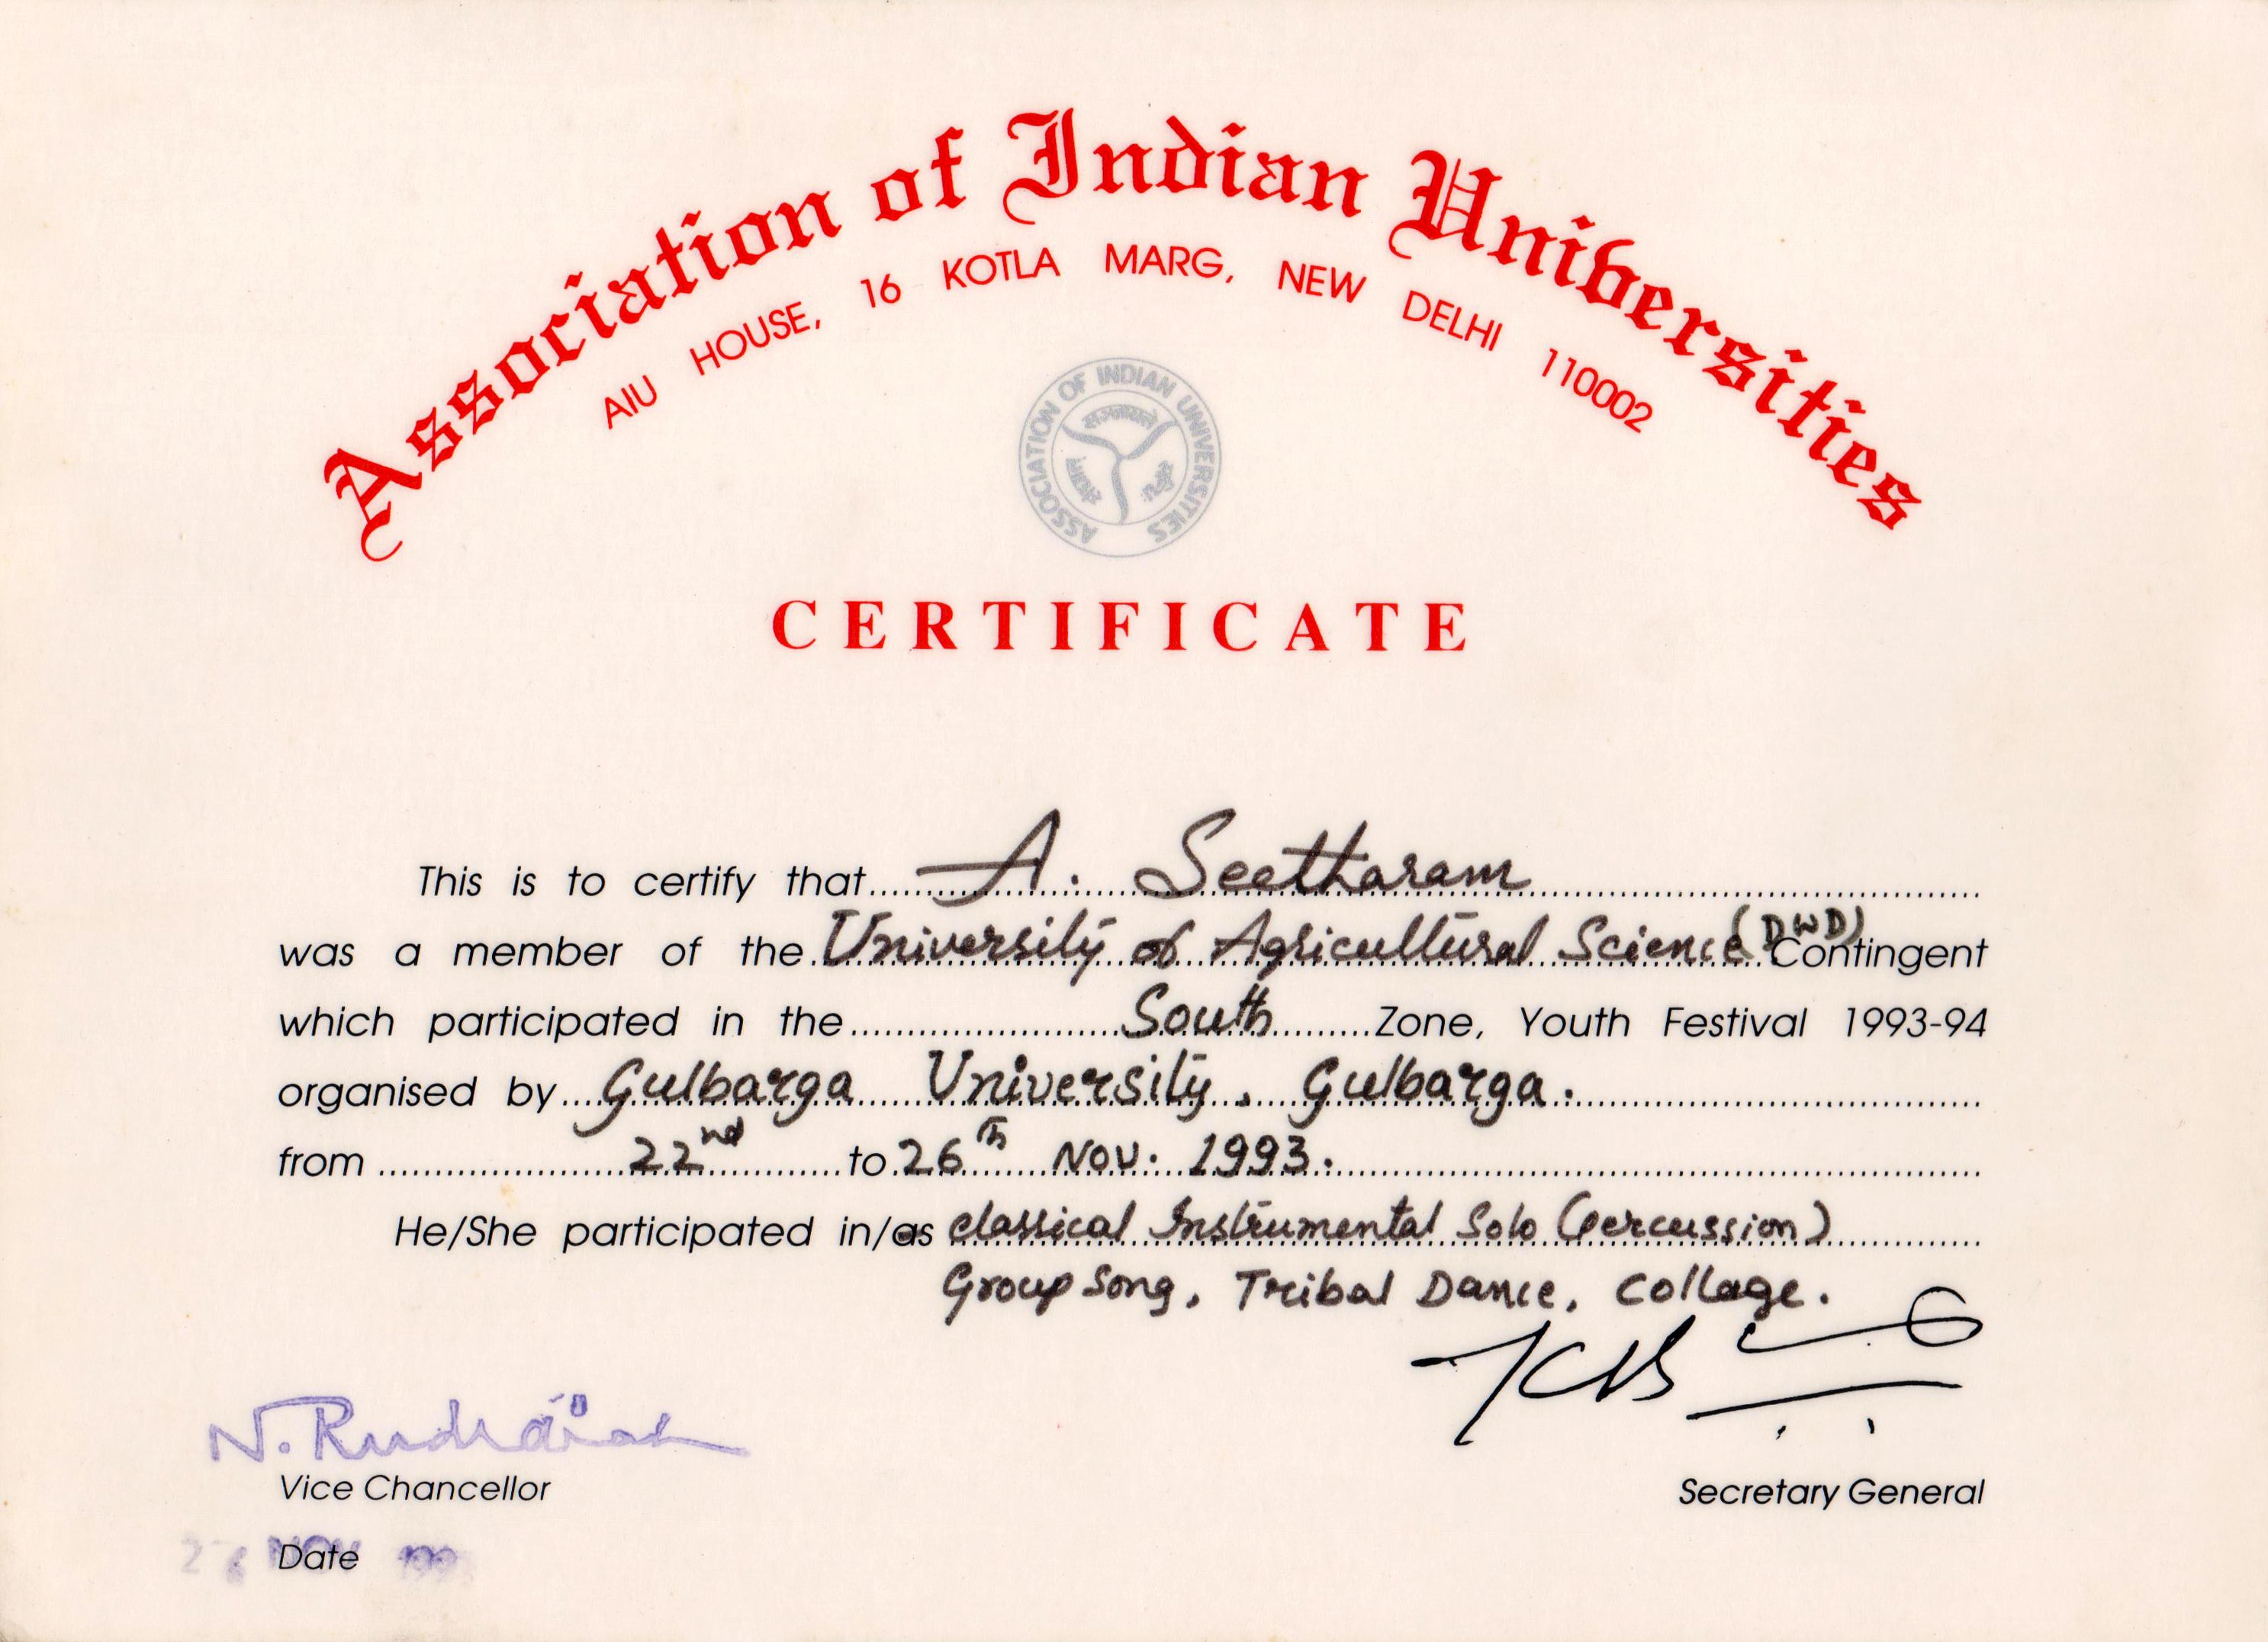 Association of Indian Universities
AIU HOUSE, 16 KOTLA MARG, NEW DELHI 110002
ASSOCIATION OF INDIAN UNIVERSITIES
CERTIFICATE
This is to certify that A. Seetharam
was a member of the University of Agricultural Science (DWD) Contingent
which participated in the South Zone, Youth Festival 1993-94
organised by Gulbarga University, Gulbarga.
from 22nd to 26th Nov. 1993.
He/She participated in/as classical Instrumental Solo (percussion)
Group Song, Tribal Dance, Collage.
N. Rudraiah
Vice Chancellor
Secretary General
Date 26 NOV 1993